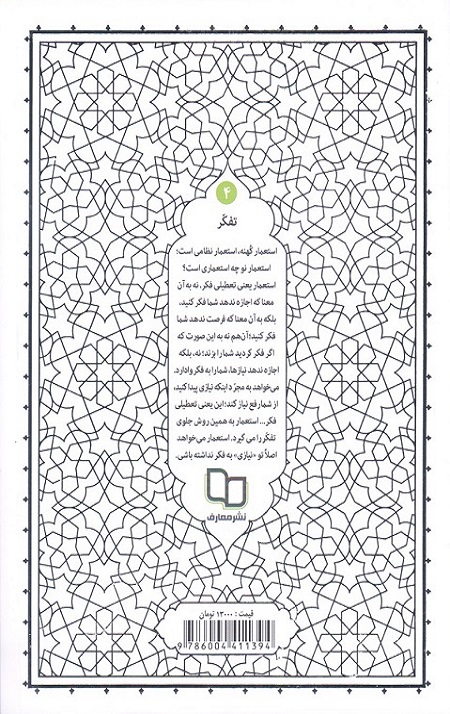 ۴
تفکّر
استعمار کُهنه، استعمار نظامی است؛
استعمار نو چه استعماری است؟
استعمار یعنی تعطیلی فکر. نه به آن
معنا که اجازه ندهد شما فکر کنید،
بلکه به آن معنا که فرصت ندهد شما
فکر کنید؛ آن‌هم نه به این صورت که
اگر فکر کردید شما را بزند؛ نه، بلکه
اجازه ندهد نیازها، شما را به فکر وادارد.
می‌خواهد به مجرّد اینکه نیازی پیدا کنید،
از شما رفع نیاز کند؛ این یعنی تعطیلی
فکر... استعمار به همین روش جلوی
تفکّر را می گیرد. استعمار می‌خواهد
اصلاً تو «نیازی» به فکر نداشته باشی.
نشر معارف
قیمت: ۱۳۰۰۰ تومان
9 786004 411394